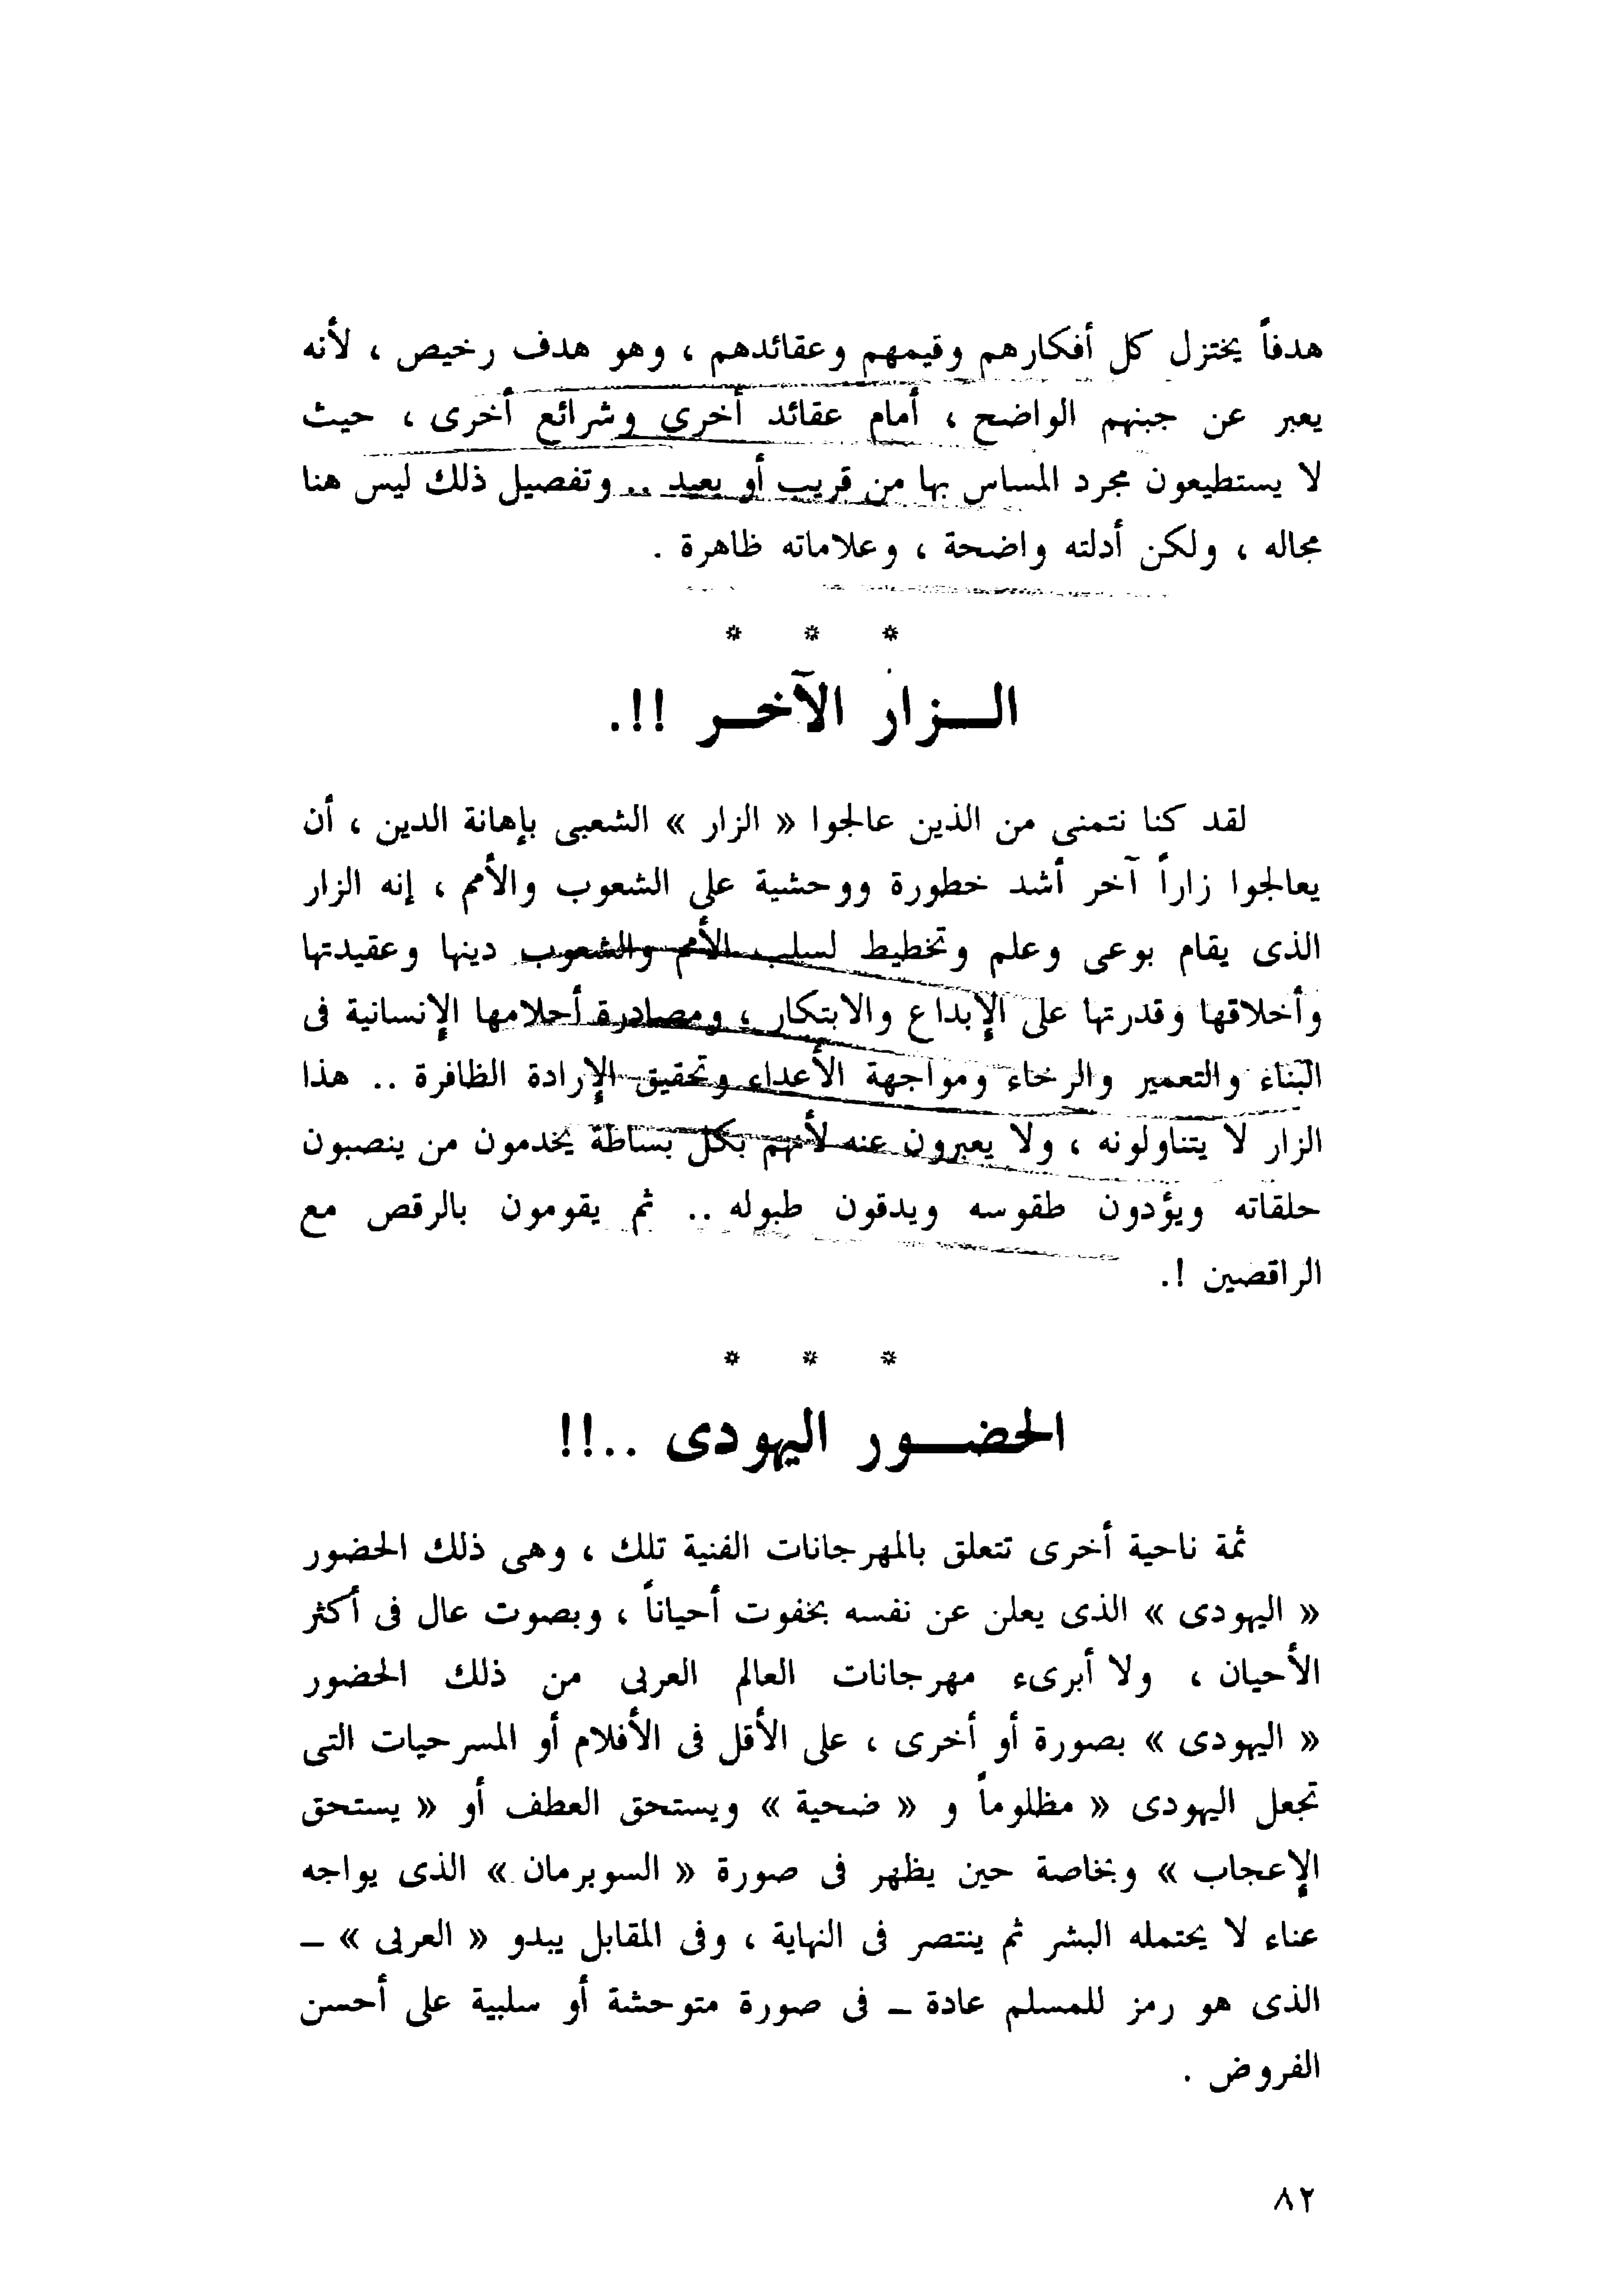 هدفاً يختزل كل أفكارهم وقيمهم وعقائدهم ، وهو هدف رخيص ، لأنه
يعبر عن جبنهم الواضح ، أمام عقائد أخرى وشرائع أخرى ، حيث
لا يستطيعون مجرد المساس بها من قريب أو بعيد .. وتفصيل ذلك ليس هنا
مجاله ، ولكن أدلته واضحة ، وعلاماته ظاهرة .
* * *
الـــزار الآخــر !!.
لقد كنا نتمنى من الذين عالجوا « الزار » الشعبى بإهانة الدين ، أن
يعالجوا زاراً آخر أشد خطورة ووحشية على الشعوب والأمم ، إنه الزار
الذى يقام بوعى وعلم وتخطيط لسلب الأمم والشعوب دينها وعقيدتها
وأخلاقها وقدرتها على الإبداع والابتكار ، ومصادرة أحلامها الإنسانية فى
البناء والتعمير والرخاء ومواجهة الأعداء وتحقيق الإرادة الظافرة .. هذا
الزار لا يتناولونه ، ولا يعبرون عنه لأنهم بكل بساطة يخدمون من ينصبون
حلقاته ويؤدون طقوسه ويدقون طبوله .. ثم يقومون بالرقص مع
الراقصين !.
* * *
الحضـــور اليهودى ..!!
ثمة ناحية أخرى تتعلق بالمهرجانات الفنية تلك ، وهى ذلك الحضور
« اليهودى » الذى يعلن عن نفسه بخفوت أحياناً ، وبصوت عال فى أكثر
الأحيان ، ولا أبرىء مهرجانات العالم العربى من ذلك الحضور
« اليهودى » بصورة أو أخرى ، على الأقل فى الأفلام أو المسرحيات التى
تجعل اليهودى « مظلوماً و « ضحية » ويستحق العطف أو « يستحق
الإعجاب » وبخاصة حين يظهر فى صورة « السوبرمان » الذى يواجه
عناء لا يحتمله البشر ثم ينتصر فى النهاية ، وفى المقابل يبدو « العربى » ـ
الذى هو رمز للمسلم عادة ـ فى صورة متوحشة أو سلبية على أحسن
الفروض .
٨٢